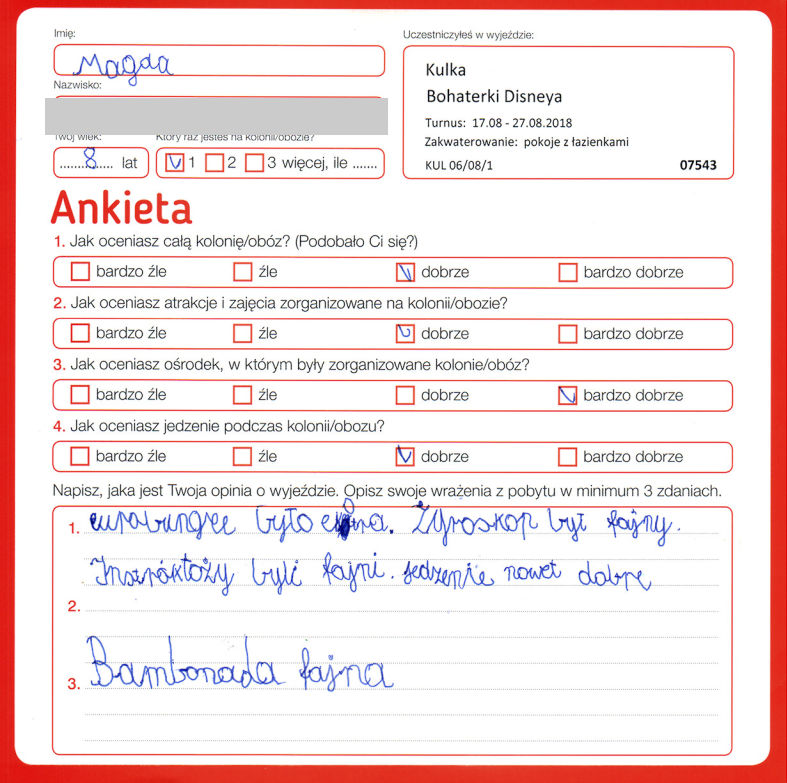 Imię:
Magda
Nazwisko:
Twój wiek:
Który raz jesteś na kolonii/obozie?
8 lat
1 2 3 więcej, ile .......
Uczestniczyłeś w wyjeździe:
Kulka
Bohaterki Disneya
Turnus: 17.08 - 27.08.2018
Zakwaterowanie: pokoje z łazienkami
KUL 06/08/1 07543
Ankieta
1. Jak oceniasz całą kolonię/obóz? (Podobało Ci się?)
bardzo źle źle dobrze bardzo dobrze
2. Jak oceniasz atrakcje i zajęcia zorganizowane na kolonii/obozie?
bardzo źle źle dobrze bardzo dobrze
3. Jak oceniasz ośrodek, w którym były zorganizowane kolonie/obóz?
bardzo źle źle dobrze bardzo dobrze
4. Jak oceniasz jedzenie podczas kolonii/obozu?
bardzo źle źle dobrze bardzo dobrze
Napisz, jaka jest Twoja opinia o wyjeździe. Opisz swoje wrażenia z pobytu w minimum 3 zdaniach.
1. było Żyroskop był fajny.
Instróktoży byli fajni. jedzenie nawet dobre
2.
3. Bambonada fajna